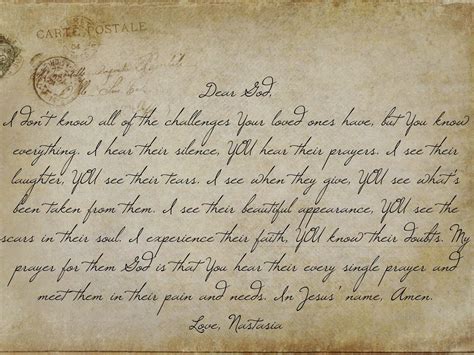 CARTE POSTALE
Dear God,
I don't know all of the challenges Your loved ones have, but You know
everything. I hear their silence, YOU hear their prayers. I see their
laughter, YOU see their tears. I see when they give, YOU see what's
been taken from them. I see their beautiful appearance, YOU see the
scars in their soul. I experience their faith, YOU know their doubts. My
prayer for them God is that You hear their every single prayer and
meet them in their pain and needs. In Jesus' name, Amen.
Love, Nastasia